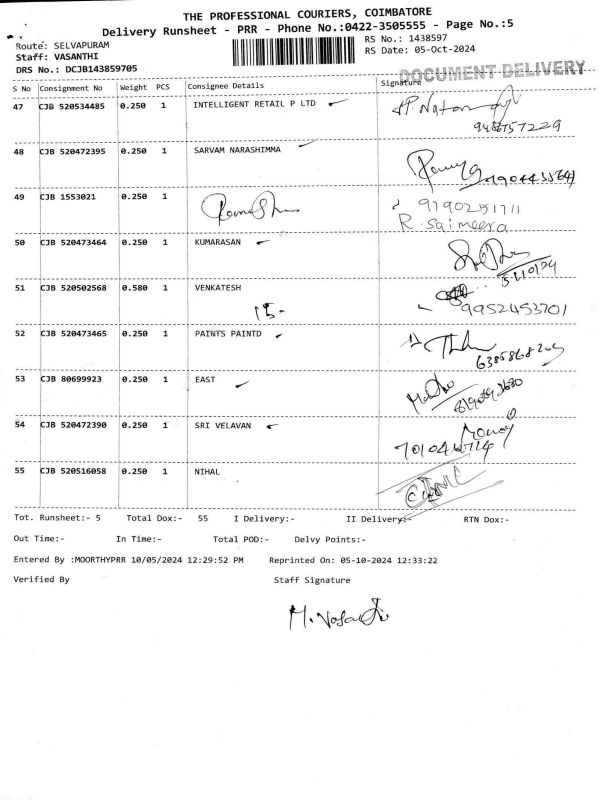 THE PROFESSIONAL COURIERS, COIMBATORE
Delivery Runsheet - PRR - Phone No.:0422-3505555 - Page No.:5
Route: SELVAPURAM RS No.: 1438597
Staff: VASANTHI RS Date: 05-Oct-2024
DRS No.: DCJB143859705 DOCUMENT DELIVERY
S No Consignment No Weight PCS Consignee Details Signature
47 CJB 520534485 0.250 1 INTELLIGENT RETAIL P LTD
48 CJB 520472395 0.250 1 SARVAM NARASHIMMA
49 CJB 1553021 0.250 1 9790251711
R. Saimeera
50 CJB 520473464 0.250 1 KUMARASAN
5/10/24
51 CJB 520502568 0.580 1 VENKATESH
15- 9952453701
52 CJB 520473465 0.250 1 PAINTS PAINTD
53 CJB 80699923 0.250 1 EAST
54 CJB 520472390 0.250 1 SRI VELAVAN
55 CJB 520516058 0.250 1 NIHAL
Tot. Runsheet:- 5 Total Dox:- 55 I Delivery:- II Delivery:- RTN Dox:-
Out Time:- In Time:- Total POD:- Delvy Points:-
Entered By :MOORTHYPRR 10/05/2024 12:29:52 PM Reprinted On: 05-10-2024 12:33:22
Verified By Staff Signature